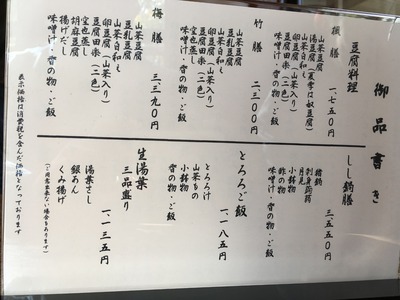 御品書き
豆腐料理
楓膳 一、七五〇円
湯豆腐(夏季は奴豆腐)
山菜豆腐
山菜白和え
卵豆腐
味噌汁・香の物・ご飯
竹膳 二、三〇〇円
山菜豆腐
豆乳豆腐
山菜白和え
卵豆腐(山菜入り)
豆腐田楽(二色)
宝也蒸し
味噌汁・香の物・ご飯
梅膳 三、三九〇円
山菜豆腐
豆乳豆腐
山菜白和え
卵豆腐(山菜入り)
豆腐田楽(二色)
宝也蒸し
胡麻豆腐
揚げだし
味噌汁・香の物・ご飯
しし鍋膳 三、五五〇円
猪鍋
刺身蒟蒻
月見
小鉢物
酢の物
味噌汁・香の物・ご飯
とろろご飯 一、一八五円
とろろ汁
山菜もの
小鉢物
香の物・ご飯
生湯葉三品盛り 一、一三五円
湯葉さし
銀あん
くみ揚げ
(ご用意出来ない場合もあります)
表示価格は消費税を含んだ価格となっております